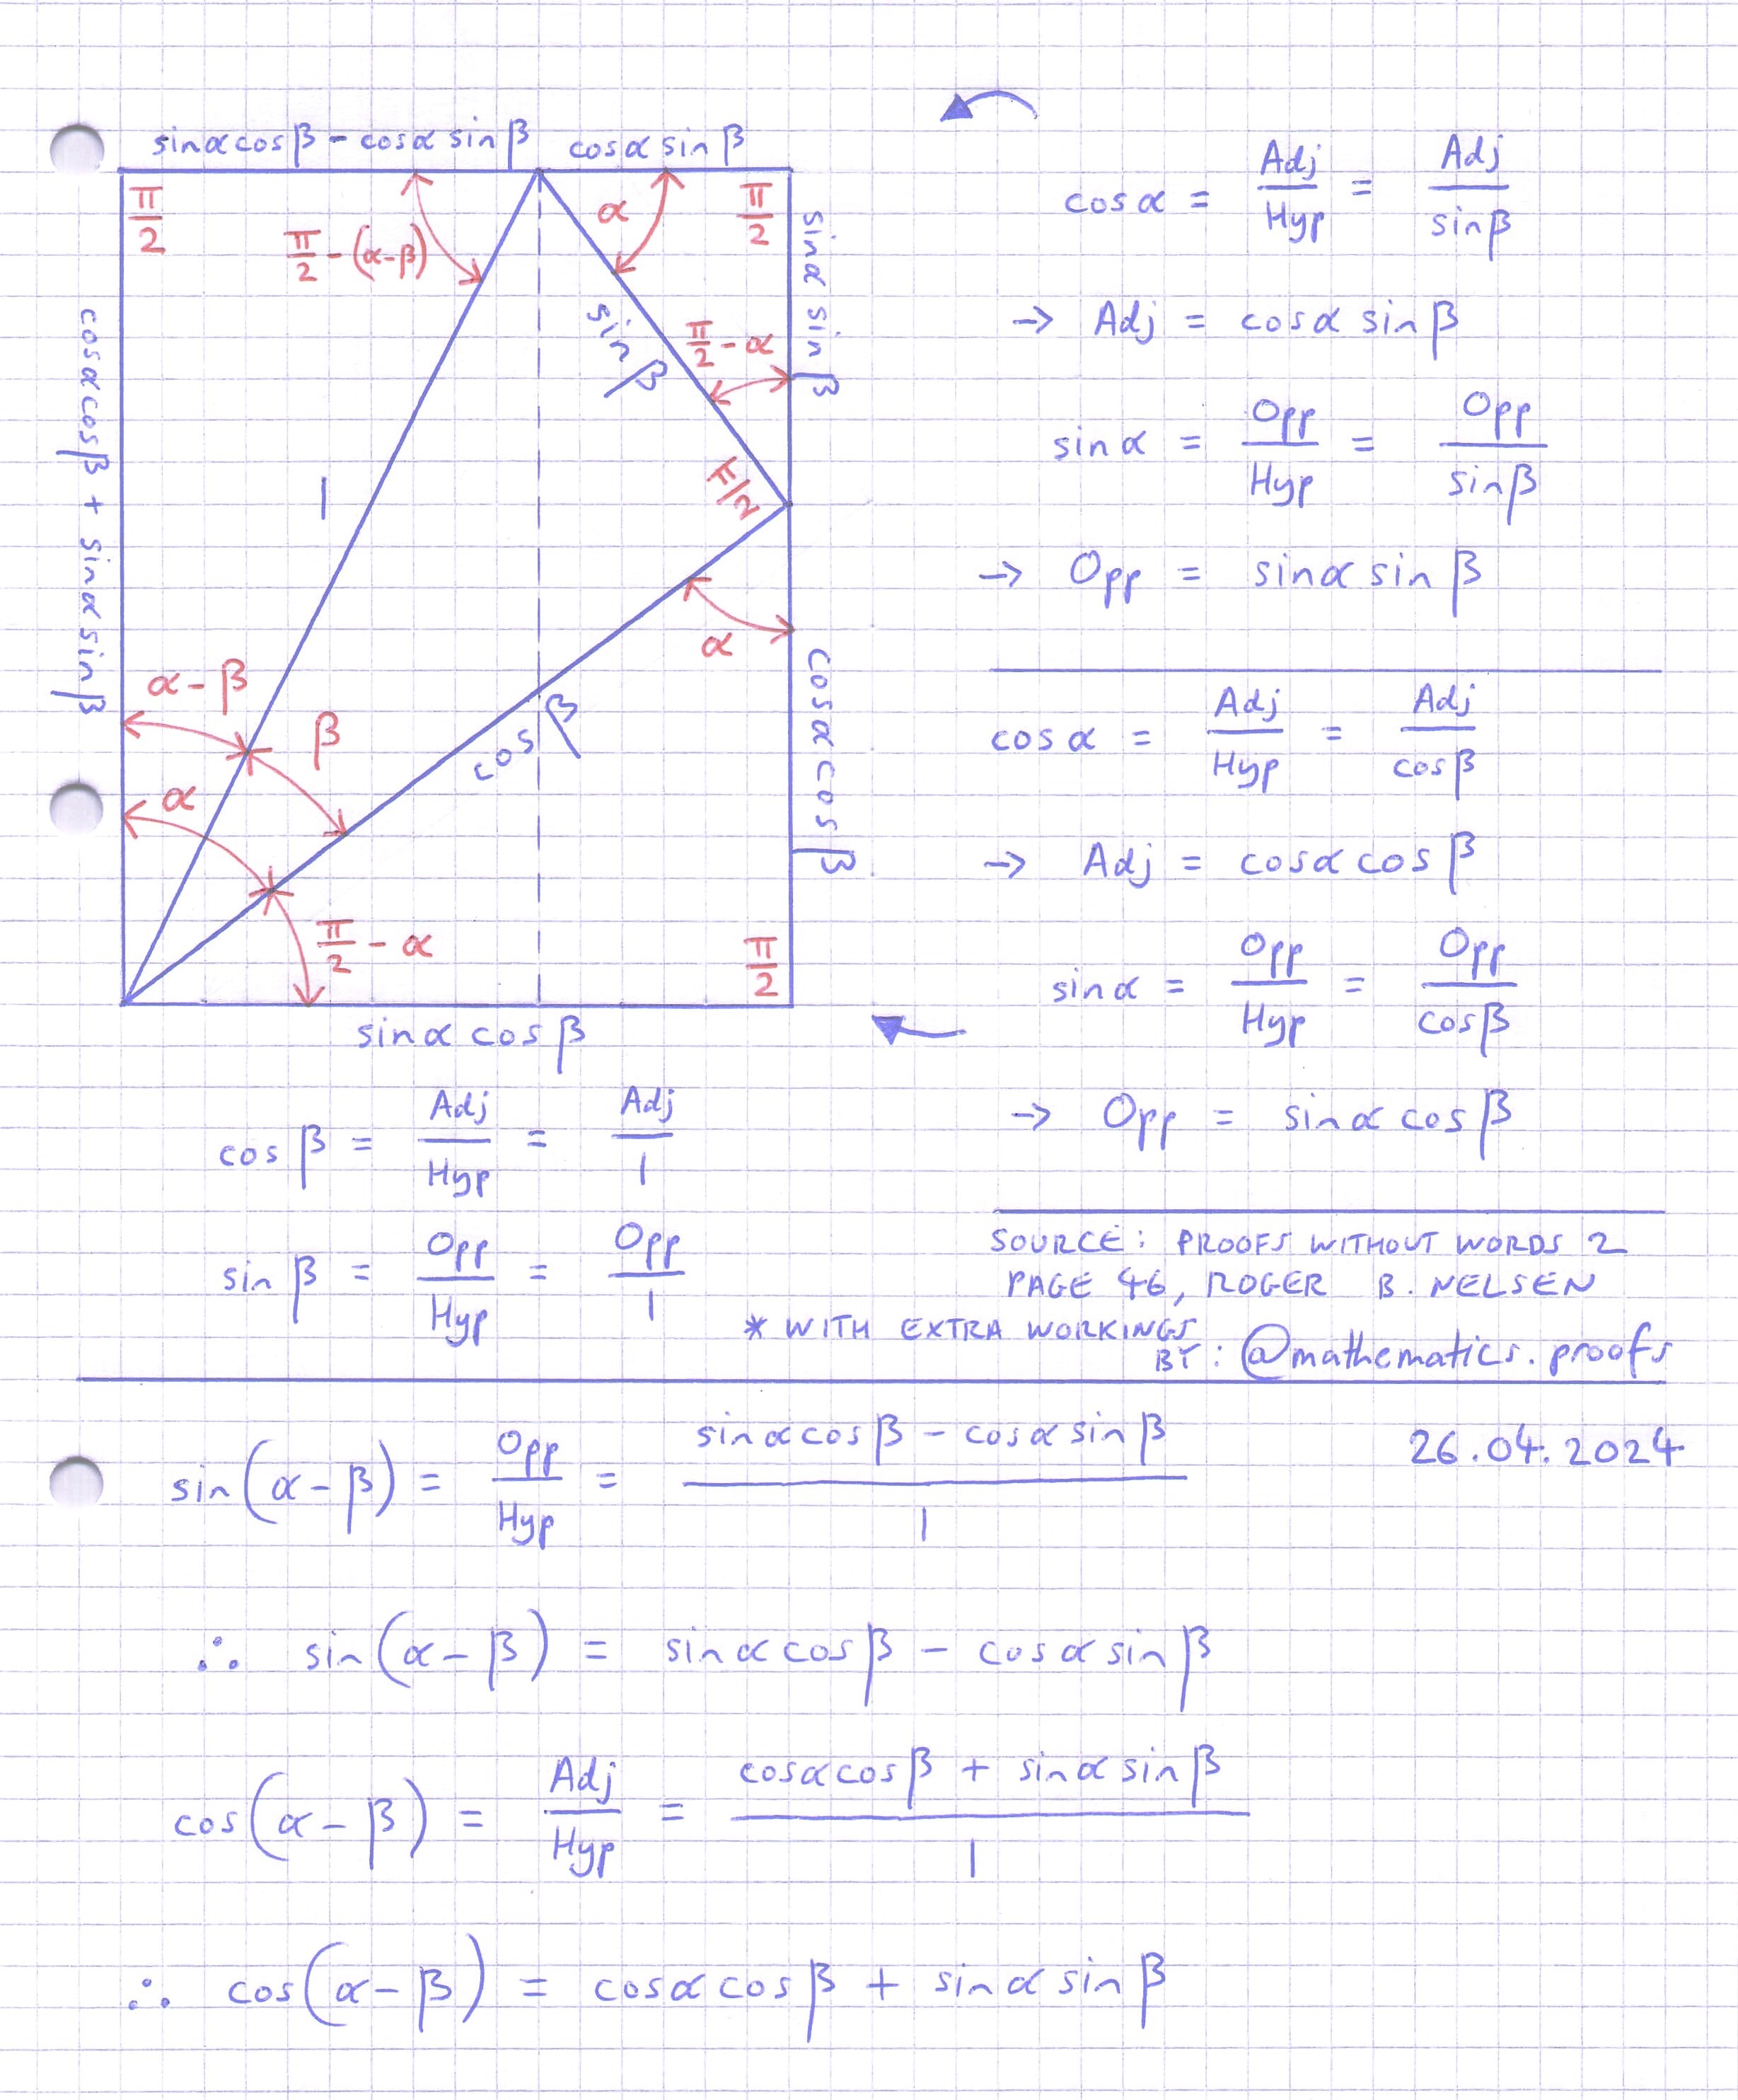 sinαcosβ - cosα sinβ cosα sinβ
π/2
π/2 - (α-β)
α
π/2
sinα sinβ
cosαcosβ + sinαsinβ
sinβ
π/2 - α
1
π/2
α
α-β
β
cosβ
cosα cosβ
α
π/2 - α
π/2
sinα cosβ
cosα = Adj/Hyp = Adj/sinβ
→ Adj = cosα sinβ
sinα = Opp/Hyp = Opp/sinβ
→ Opp = sinα sinβ
cosα = Adj/Hyp = Adj/cosβ
→ Adj = cosα cosβ
sinα = Opp/Hyp = Opp/cosβ
→ Opp = sinα cosβ
cosβ = Adj/Hyp = Adj/1
sinβ = Opp/Hyp = Opp/1
SOURCE: PROOFS WITHOUT WORDS 2
PAGE 46, ROGER B. NELSEN
* WITH EXTRA WORKINGS
BY: @mathematics.proofs
26.04.2024
sin(α-β) = Opp/Hyp = sinαcosβ - cosα sinβ/1
∴ sin(α-β) = sinαcosβ - cosα sinβ
cos(α-β) = Adj/Hyp = cosαcosβ + sinα sinβ/1
∴ cos(α-β) = cosαcosβ + sinα sinβ